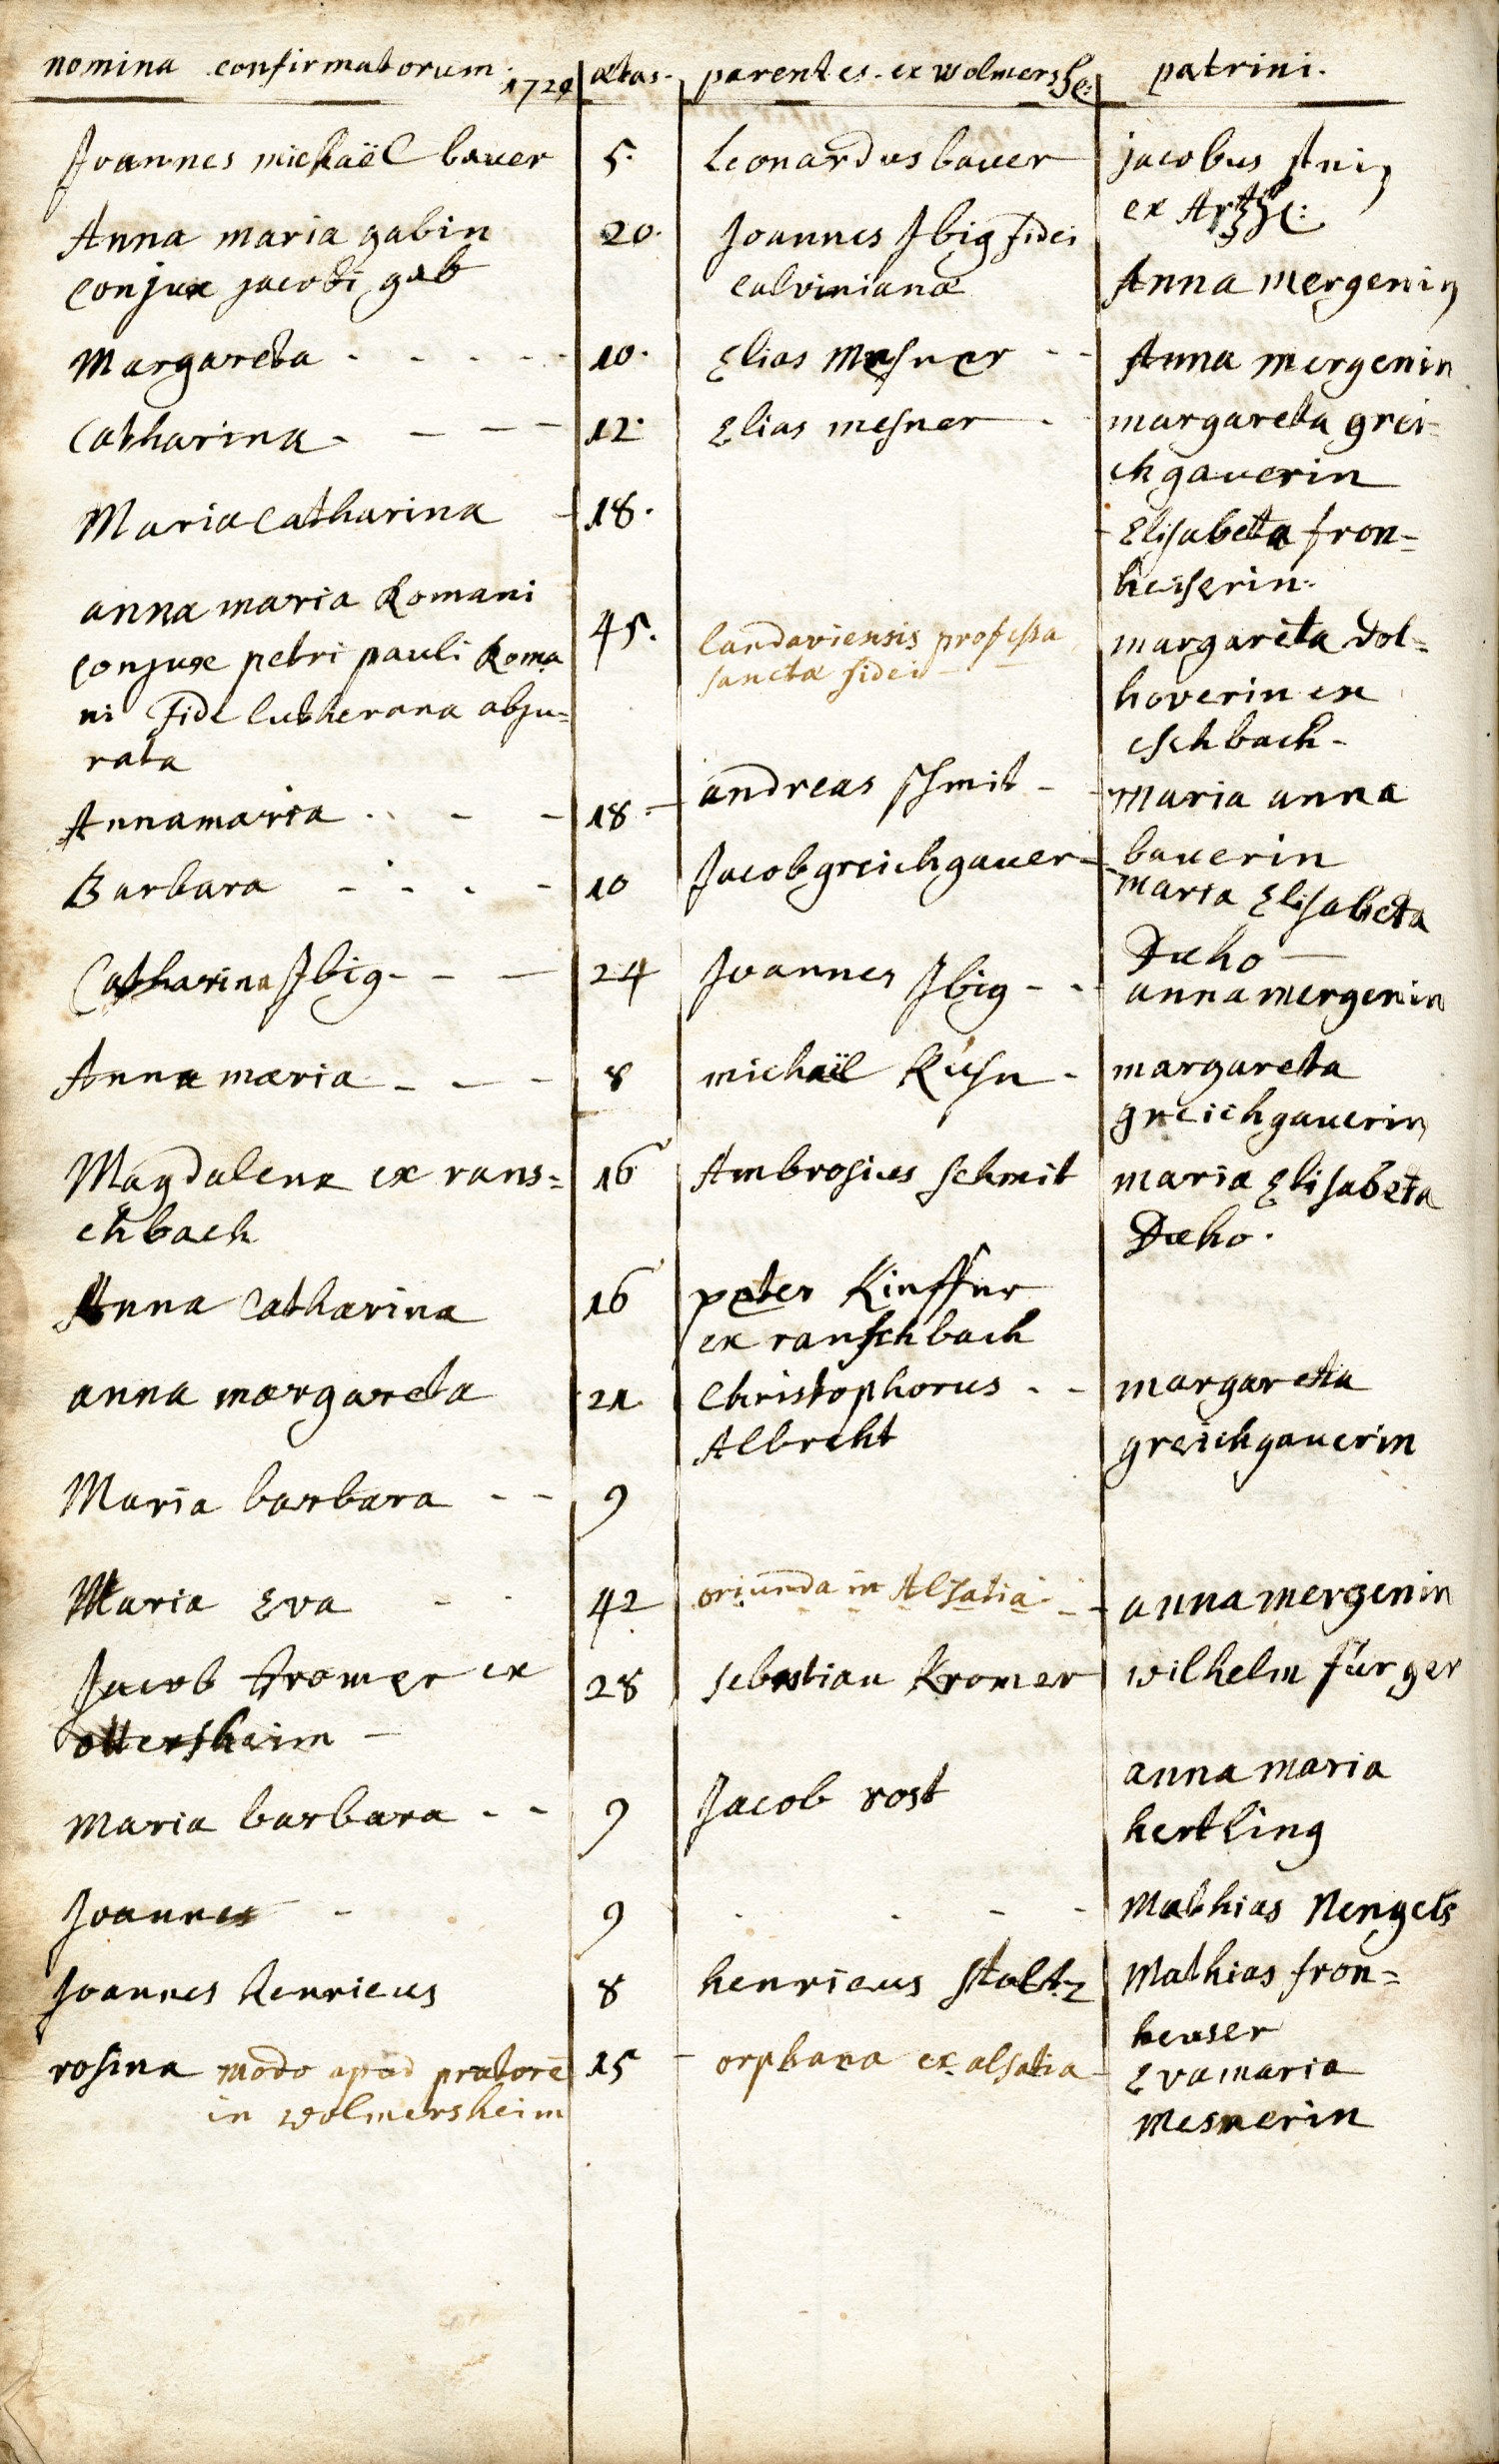 nomina confirmatorum. 1729 ætas. parentes. ex wolmershe: patrini.
Joannes michaël bauer 5. Leonardus bauer jacobus
ex
Anna maria gabin 20. Joannes Jbig fidei
conjux jacobi gab calvinianæ Anna mergenin
Margareta - - - - - 10. Elias Mesner - - Anna mergenin
Catharina - - - - 12. Elias mesner - margareta grei=
chgauerin
Maria Catharina - 18. - Elisabeta fron=
heiserin.
anna maria Romani
conjux petri pauli Roma 45. landaviensis professa margareta dol=
ni fide lutherana abju= sanctæ fidei - hoverin ex
rata eschbach -
Anna maria - - - 18 - andreas schmit - - maria anna
bauerin
Barbara - - - - 10 Jacob greichgauer - maria Elisabeta
Dæho -
Catharina Jbig - - - 24 Joannes Jbig - - anna mergenin
Anna maria - - - 8 michaël Kuhn - margareta
greichgauerin
Magdalena ex rans= 16 Ambrosius schmit maria Elisabeta
chbach Dæho.
Anna Catharina 16 peter Kieffer
ex ranschbach
anna margareta 21. Christophorus - - margareta
Albrecht greichgauerin
Maria barbara - - 9
Maria Eva - - 42 oriunda in Alsatia - - anna mergenin
Jacob Kromer ex 28 sebastian Kromer wilhelm fürger
ottersheim -
Maria barbara - - 9 Jacob rost anna maria
hertling
Joannes - 9 - - - - Mathias Nengels
Joannes henricus 8 henricus stoltz Mathias fron=
heuser
rosina modo apud prætorē 15 - orphana ex alsatia - Eva maria
in wolmersheim Mesnerin